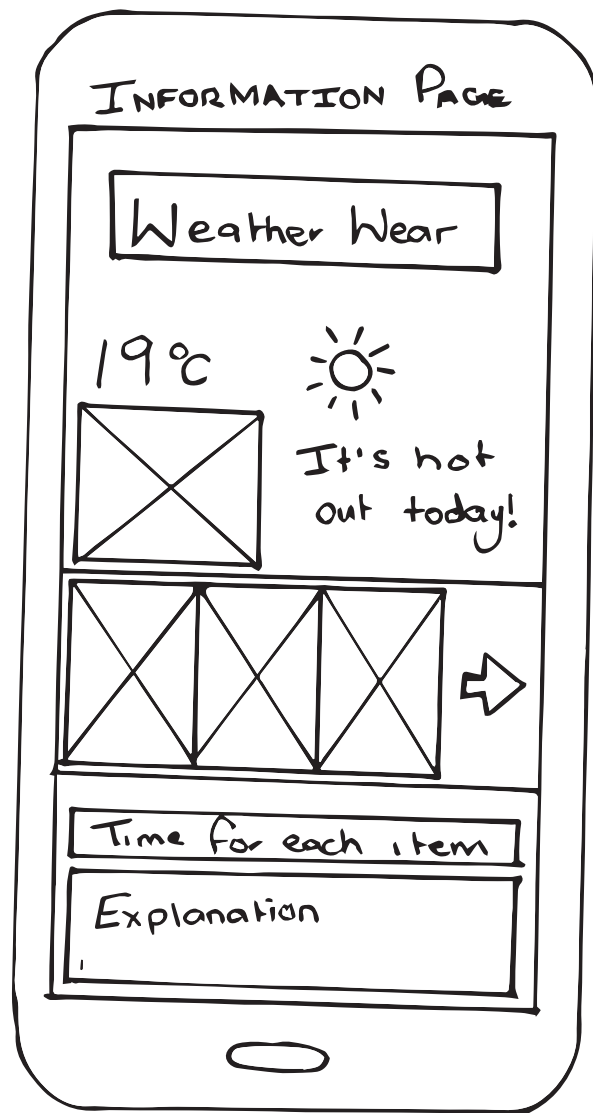 INFORMATION PAGE
Weather Wear
19°C
It's hot
out today!
Time for each item
Explanation